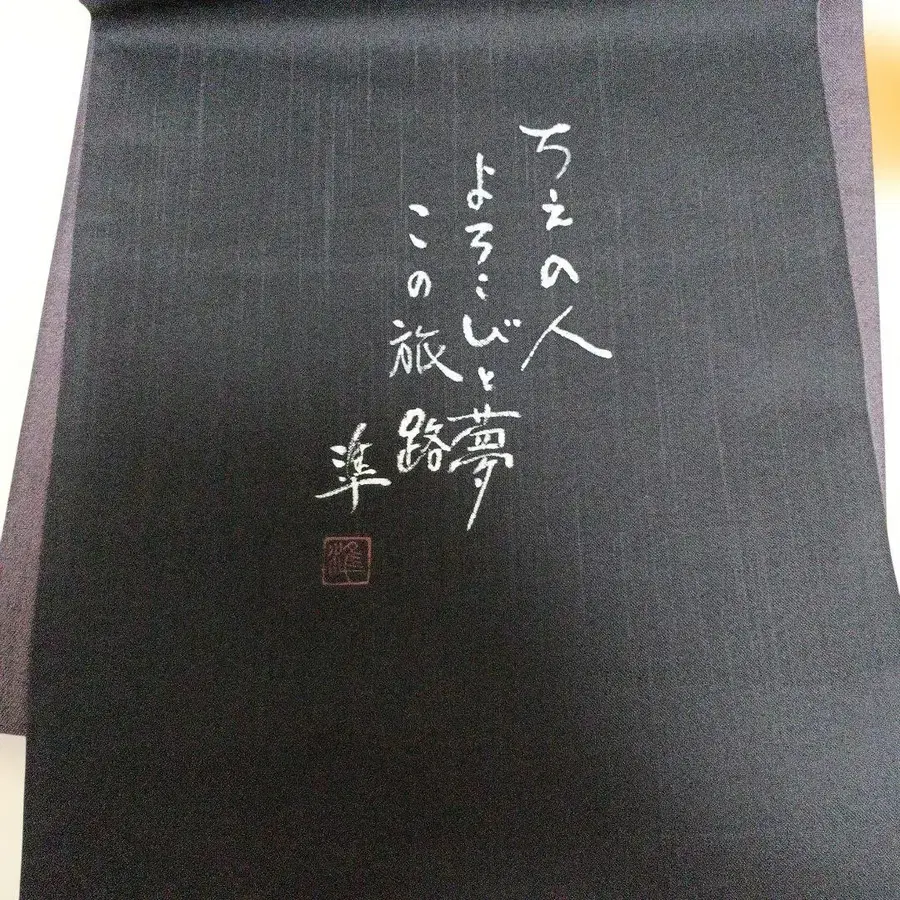 ちえの人
よろこびと夢
この旅路
準
準